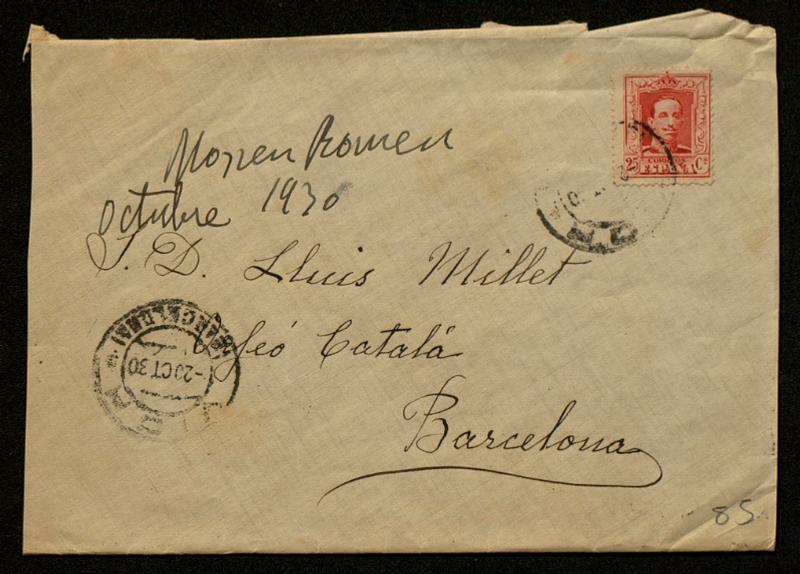 Mossen Romeu
octubre 1930
S. D. Lluis Millet
Orfeó Català
Barcelona
25 CORREOS Cs
ESPAÑA
(BARCELONA)
-2 OCT 30
85